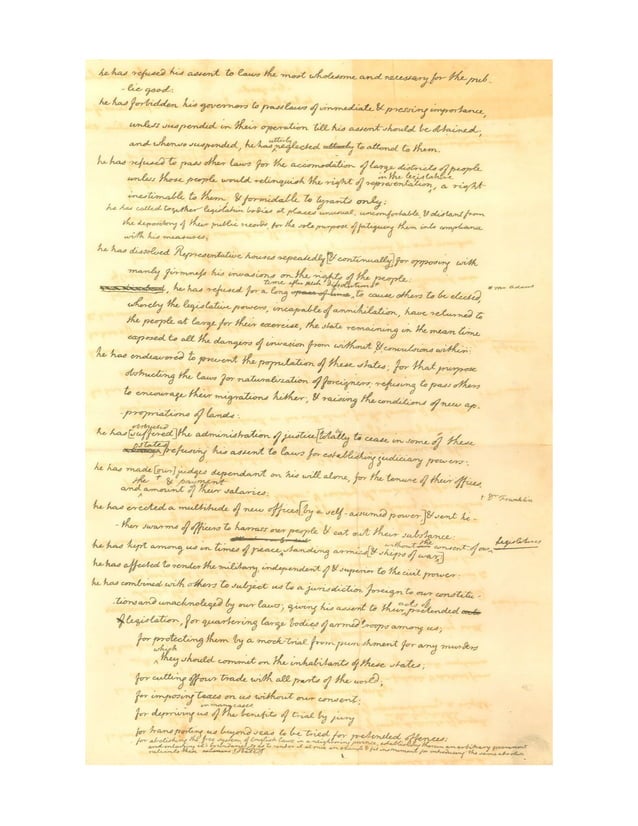 he has refused his assent to laws the most wholesome and necessary for the pub-
-lic good:
he has forbidden his governors to pass laws of immediate & pressing importance,
unless suspended in their operation till his assent should be obtained,
utterly
and when so suspended, he has neglected utterly to attend to them.
he has refused to pass other laws for the accomodation of large districts of people
in the legislature
unless those people would relinquish the right of representation, a right
inestimable to them & formidable to tyrants only:
he has called together legislative bodies at places unusual, uncomfortable, & distant from
the depository of their public records, for the sole purpose of fatiguing them into compliance
with his measures;
he has dissolved Representative houses repeatedly [& continually] for opposing with
manly firmness his invasions on the rights of the people:
time after such dissolutions * * mr Adams
he has refused for a long space of time, to cause others to be elected,
whereby the legislative powers, incapable of annihilation, have returned to
the people at large for their exercise, the state remaining in the mean time
exposed to all the dangers of invasion from without & convulsions within:
he has endeavored to prevent the population of these states; for that purpose
obstructing the laws for naturalization of foreigners; refusing to pass others
to encourage their migrations hither; & raising the conditions of new ap-
-propriations of lands:
obstructed
he has [suffered] the administration of justice [totally to cease in some of these
states]
refusing his assent to laws for establishing judiciary powers:
he has made [our] judges dependant on his will alone, for the tenure of their offices,
the † & paiment † Dr Franklin
and amount of their salaries:
he has erected a multitude of new offices [by a self-assumed power] & sent hi-
-ther swarms of officers to harrass our people & eat out their substance:
without the legislatures
he has kept among us in times of peace, standing armies [& ships of war] consent of our
he has affected to render the military, independent of & superior to the civil power:
he has combined with others to subject us to a jurisdiction foreign to our constitu-
acts of
-tions and unacknoleged by our laws; giving his assent to their pretended acts
of legislation, for quartering large bodies of armed troops among us;
for protecting them by a mock-trial from punishment for any murders
which
they should commit on the inhabitants of these states;
for cutting off our trade with all parts of the world;
for imposing taxes on us without our consent;
in many cases
for depriving us of the benefits of trial by jury
for transporting us beyond seas to be tried for pretended offences:
for abolishing the free system of English laws in a neighboring province, establishing therein an arbitrary government
and enlarging it's boundaries so as to render it at once an example & fit instrument for introducing the same absolute
rule into these colonies [states]